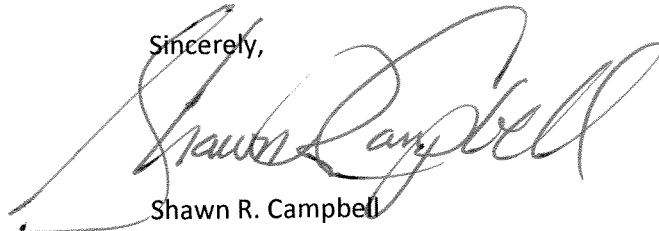 Sincerely,
Shawn R Campbell
Shawn R. Campbell